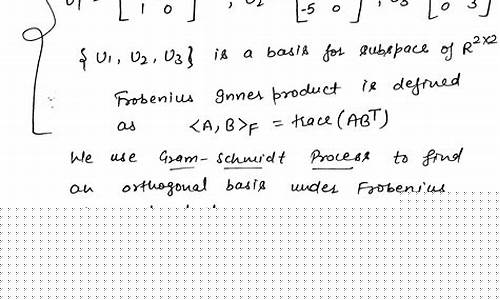 [ 1 0 ] , [ -5 0 ] , [ 0 3 ]
{ U1, U2, U3 } is a basis for subspace of R^2x2
Frobenius Inner product is defined
as <A, B>F = trace (AB^T)
We use Gram-Schmidt Process to find
an orthogonal basis under Frobenius